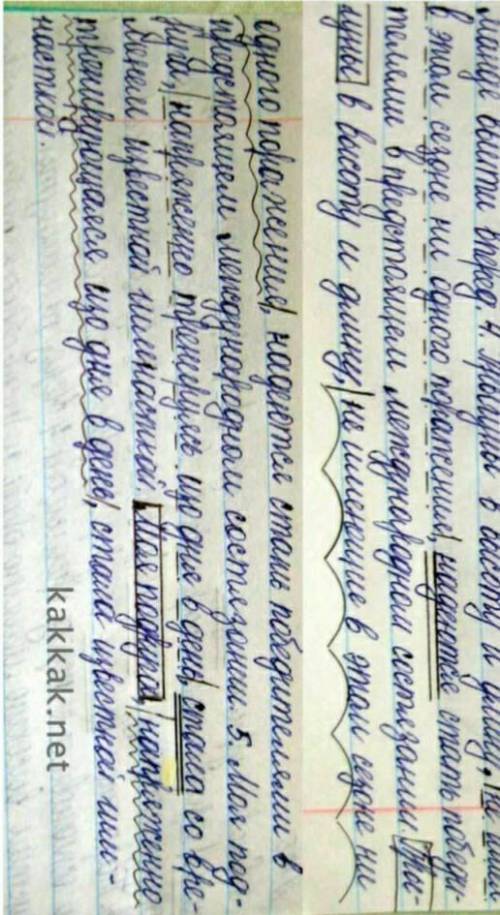 вперед 4. Прыгуны в высоту и длину, не
в этом сезоне ни одного поражения, надеются стать победи-
телями в предстоящем международном состязании. Пры-
гуны в высоту и длину, не имеющие в этом сезоне ни
одного поражения, надеются стать победителями в
предстоящем международном состязании. 5. Моя под-
руга, напряженно тренируясь изо дня в день, стала со вре-
менем известной гимнасткой. Моя подруга, напряженно
тренирующаяся изо дня в день, стала известной гим-
насткой.
kakkak.net